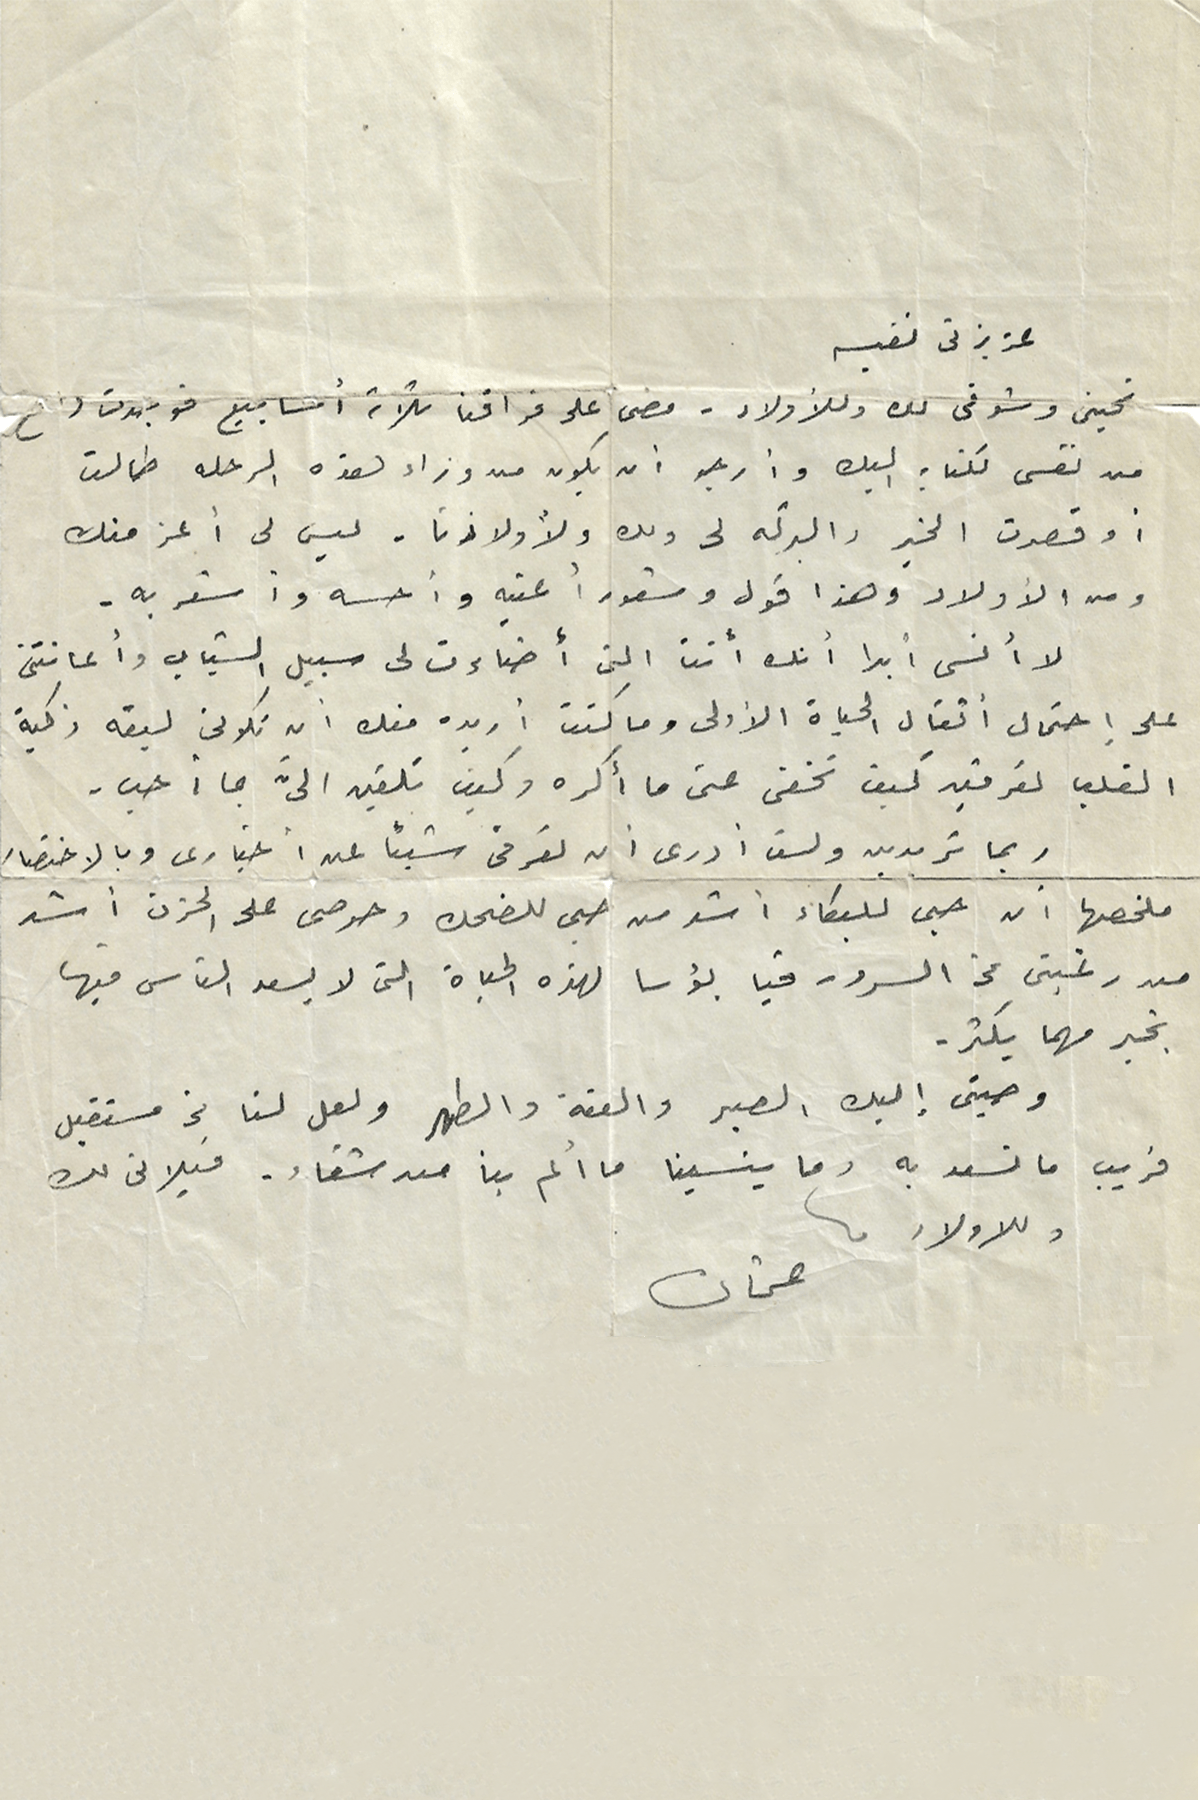 عزيزتى نفيسه
تحيتى وشوقى لك وللأولاد - مضى على فراقنا ثلاثة أسابيع فوجدت
من نفسى لكتابه اليك وأرجو أن يكون من وراء هذه الرحله طالت
أو قصرت الخير والبركه لى ولك ولأولادنا - ليس لى أعز منك
ومن الأولاد وهذا قول وشعور أعنيه وأحسه وأشعر به -
لا أنسى أبدا أنك أنت التى أضاءت لى سبيل الشباب وأعانتنى
على إحتمال أثقال الحياة الأولى وما كنت أريده منك أن تكونى لبقه ذكية
القلب تعرفين كيف تخفى عنى ما أكره وكيف تلقين الىّ بما أحب -
ربما تريدين ولست أدرى أن تعرفى شيئا عن أخبارى وبالاختصار
ملخصها أن حبى للبكاء أشد من حبى للضحك وحرصى على الحزن أشد
من رغبتى فى السرور فيا بؤسا لهذه الحياة التى لا يسعد الناس فيها
بخير مهما يكثر -
وصيتى إليك الصبر والعفة والطهر ولعل لنا فى مستقبل
قريب ما نسعد به وما ينسينا ما ألم بنا من شقاء - قبلاتى لك
وللاولاد
عثمان